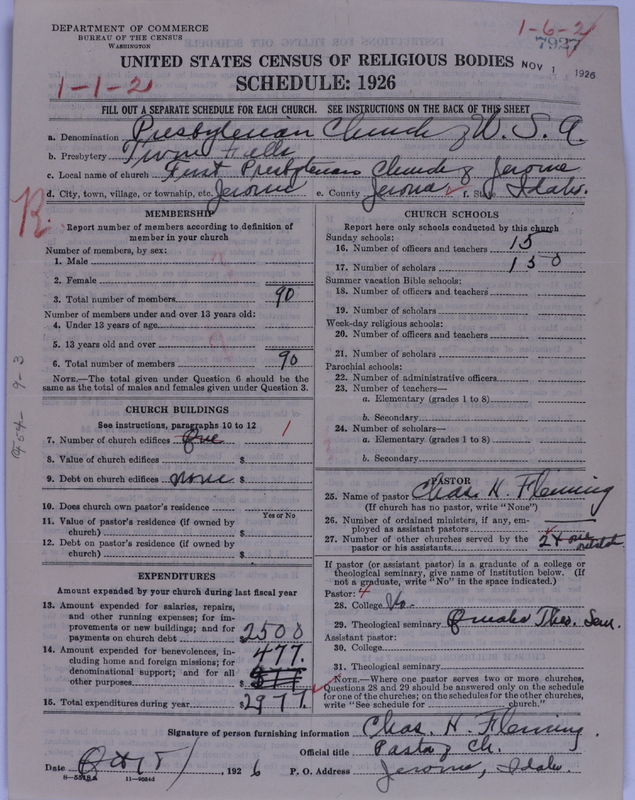 DEPARTMENT OF COMMERCE
BUREAU OF THE CENSUS
WASHINGTON
1-6-2
7927
UNITED STATES CENSUS OF RELIGIOUS BODIES
NOV 1 1926
1-1-2
SCHEDULE: 1926
FILL OUT A SEPARATE SCHEDULE FOR EACH CHURCH. SEE INSTRUCTIONS ON THE BACK OF THIS SHEET
a. Denomination Presbyterian Church of U. S. A.
b. Presbytery Twin Falls
c. Local name of church First Presbyterian Church of Jerome
d. City, town, village, or township, etc. Jerome e. County Jerome f. State Idaho.
R.
MEMBERSHIP
Report number of members according to definition of
member in your church
Number of members, by sex:
1. Male
2. Female
3. Total number of members 90
Number of members under and over 13 years old:
4. Under 13 years of age
5. 13 years old and over
6. Total number of members 90
NOTE.—The total given under Question 6 should be the
same as the total of males and females given under Question 3.
CHURCH BUILDINGS
See instructions, paragraphs 10 to 12
7. Number of church edifices One 1
8. Value of church edifices $
9. Debt on church edifices none $
10. Does church own pastor's residence
Yes or No
11. Value of pastor's residence (if owned by
church) $
12. Debt on pastor's residence (if owned by
church) $
EXPENDITURES
Amount expended by your church during last fiscal year
13. Amount expended for salaries, repairs,
and other running expenses; for im-
provements or new buildings; and for
payments on church debt $2500
14. Amount expended for benevolences, in-
cluding home and foreign missions; for
denominational support; and for all
other purposes $ 477.
15. Total expenditures during year $2977.
CHURCH SCHOOLS
Report here only schools conducted by this church
Sunday schools:
16. Number of officers and teachers 15
17. Number of scholars 150
Summer vacation Bible schools:
18. Number of officers and teachers
19. Number of scholars
Week-day religious schools:
20. Number of officers and teachers
21. Number of scholars
Parochial schools:
22. Number of administrative officers
23. Number of teachers—
a. Elementary (grades 1 to 8)
b. Secondary
24. Number of scholars—
a. Elementary (grades 1 to 8)
b. Secondary
PASTOR
25. Name of pastor Chas. H. Fleming
(If church has no pastor, write "None")
26. Number of ordained ministers, if any, em-
ployed as assistant pastors
27. Number of other churches served by the
pastor or his assistants 2
If pastor (or assistant pastor) is a graduate of a college or
theological seminary, give name of institution below. (If
not a graduate, write "No" in the space indicated.)
Pastor: 4
28. College No
29. Theological seminary Omaha Theo. Sem.
Assistant pastor:
30. College
31. Theological seminary
NOTE.—Where one pastor serves two or more churches,
Questions 28 and 29 should be answered only on the schedule
for one of the churches; on the schedules for the other churches,
write "See schedule for church."
Signature of person furnishing information Chas. H. Fleming.
Official title Pastor of Ch.
Date Oct 15, 1926 P. O. Address Jerome, Idaho.
8—5518 A 11—9504d